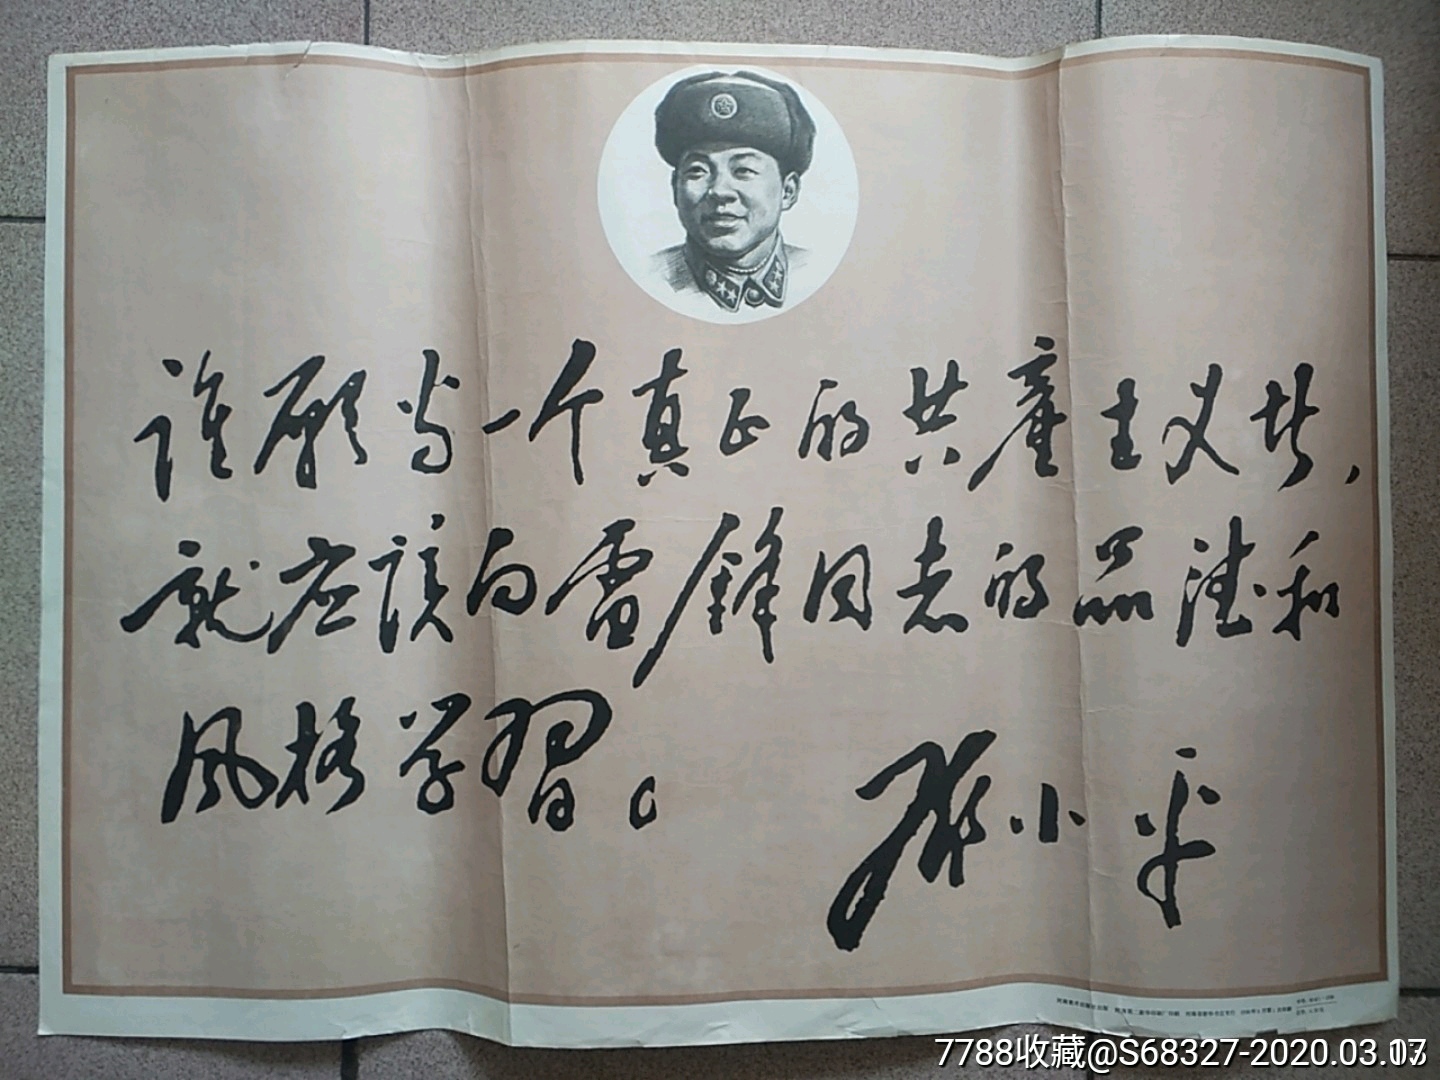 谁愿当一个真正的共产主义者，
就应该向雷锋同志的品德和
风格学习。
邓小平
7788收藏@S68327-2020.03.17